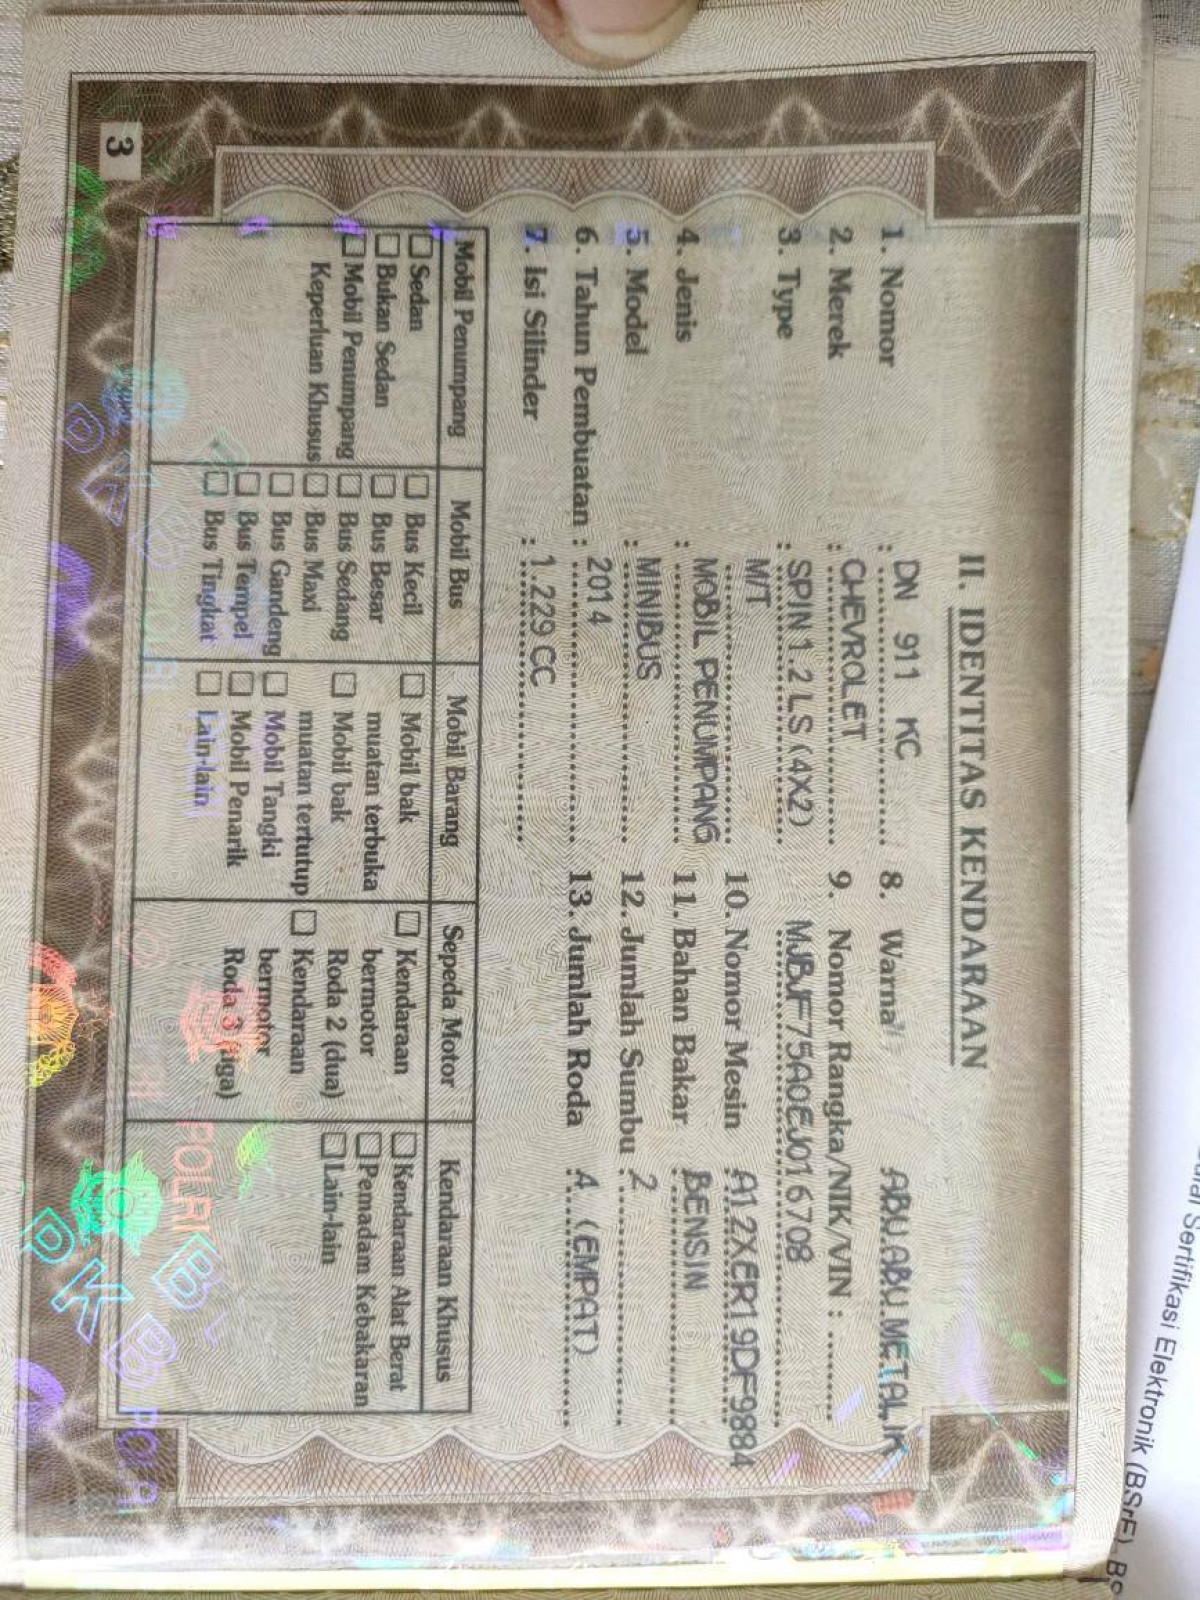 II. IDENTITAS KENDARAAN
1. Nomor : DN 911 KC
2. Merek : CHEVROLET
3. Type : SPIN 1.2 LS (4X2)
M/T
4. Jenis : MOBIL PENUMPANG
5. Model : MINIBUS
6. Tahun Pembuatan : 2014
7. Isi Silinder : 1.229 CC
8. Warna : ABU ABU METALIK
9. Nomor Rangka/NIK/VIN :
MJBJF75A0EJ016708
10. Nomor Mesin : A12XER19DF9884
11. Bahan Bakar : BENSIN
12. Jumlah Sumbu : 2
13. Jumlah Roda : 4 (EMPAT)
Mobil Penumpang
Sedan
Bukan Sedan
Mobil Penumpang
Keperluan Khusus
Mobil Bus
Bus Kecil
Bus Besar
Bus Sedang
Bus Maxi
Bus Gandeng
Bus Tempel
Bus Tingkat
Mobil Barang
Mobil bak
muatan terbuka
Mobil bak
muatan tertutup
Mobil Tangki
Mobil Penarik
Lain-lain
Sepeda Motor
Kendaraan
bermotor
Roda 2 (dua)
Kendaraan
bermotor
Roda 3 (tiga)
Kendaraan Khusus
Kendaraan Alat Berat
Pemadam Kebakaran
Lain-lain
3
POLRI
Sertifikasi Elektronik (BSrE)